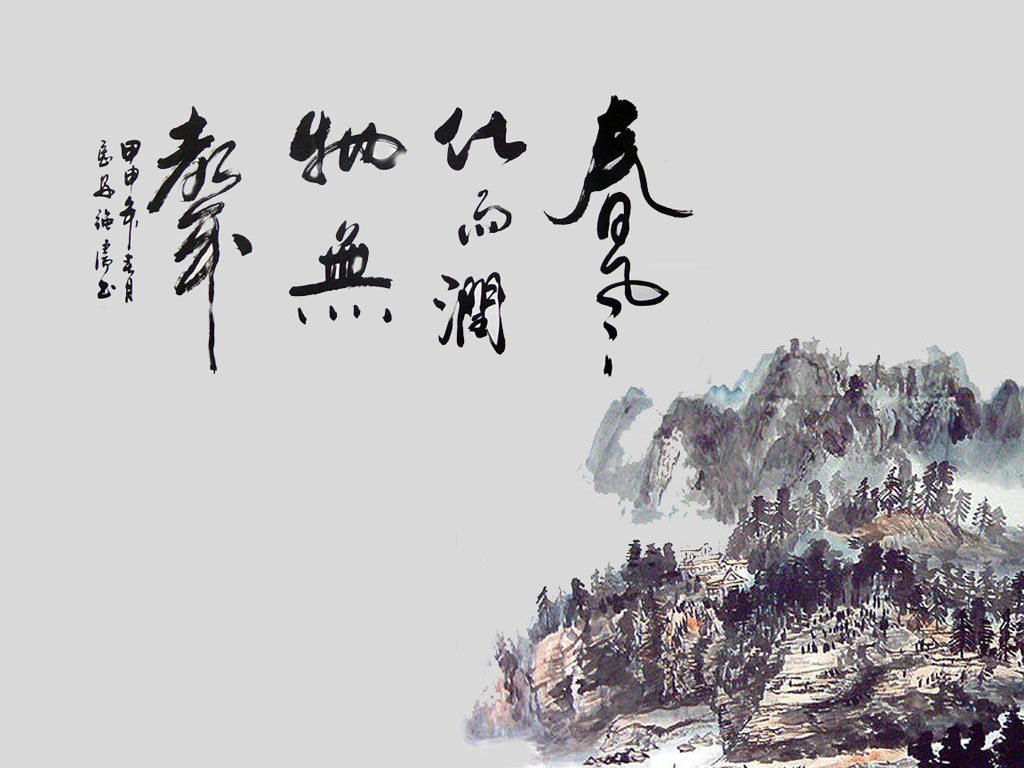 春風
化雨潤
物無
聲
甲申年春月